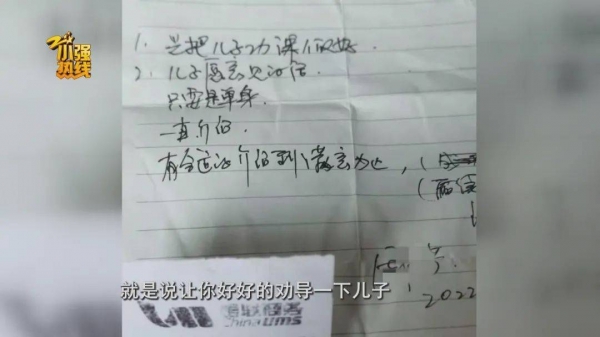 小强
热线
1. 先把儿子功课做好.
2. 儿子愿意见的话
只要是单身.
一直介绍.
有合适的介绍到满意为止,
就是说让你好好的劝导一下儿子
银联商务
China ums
2022